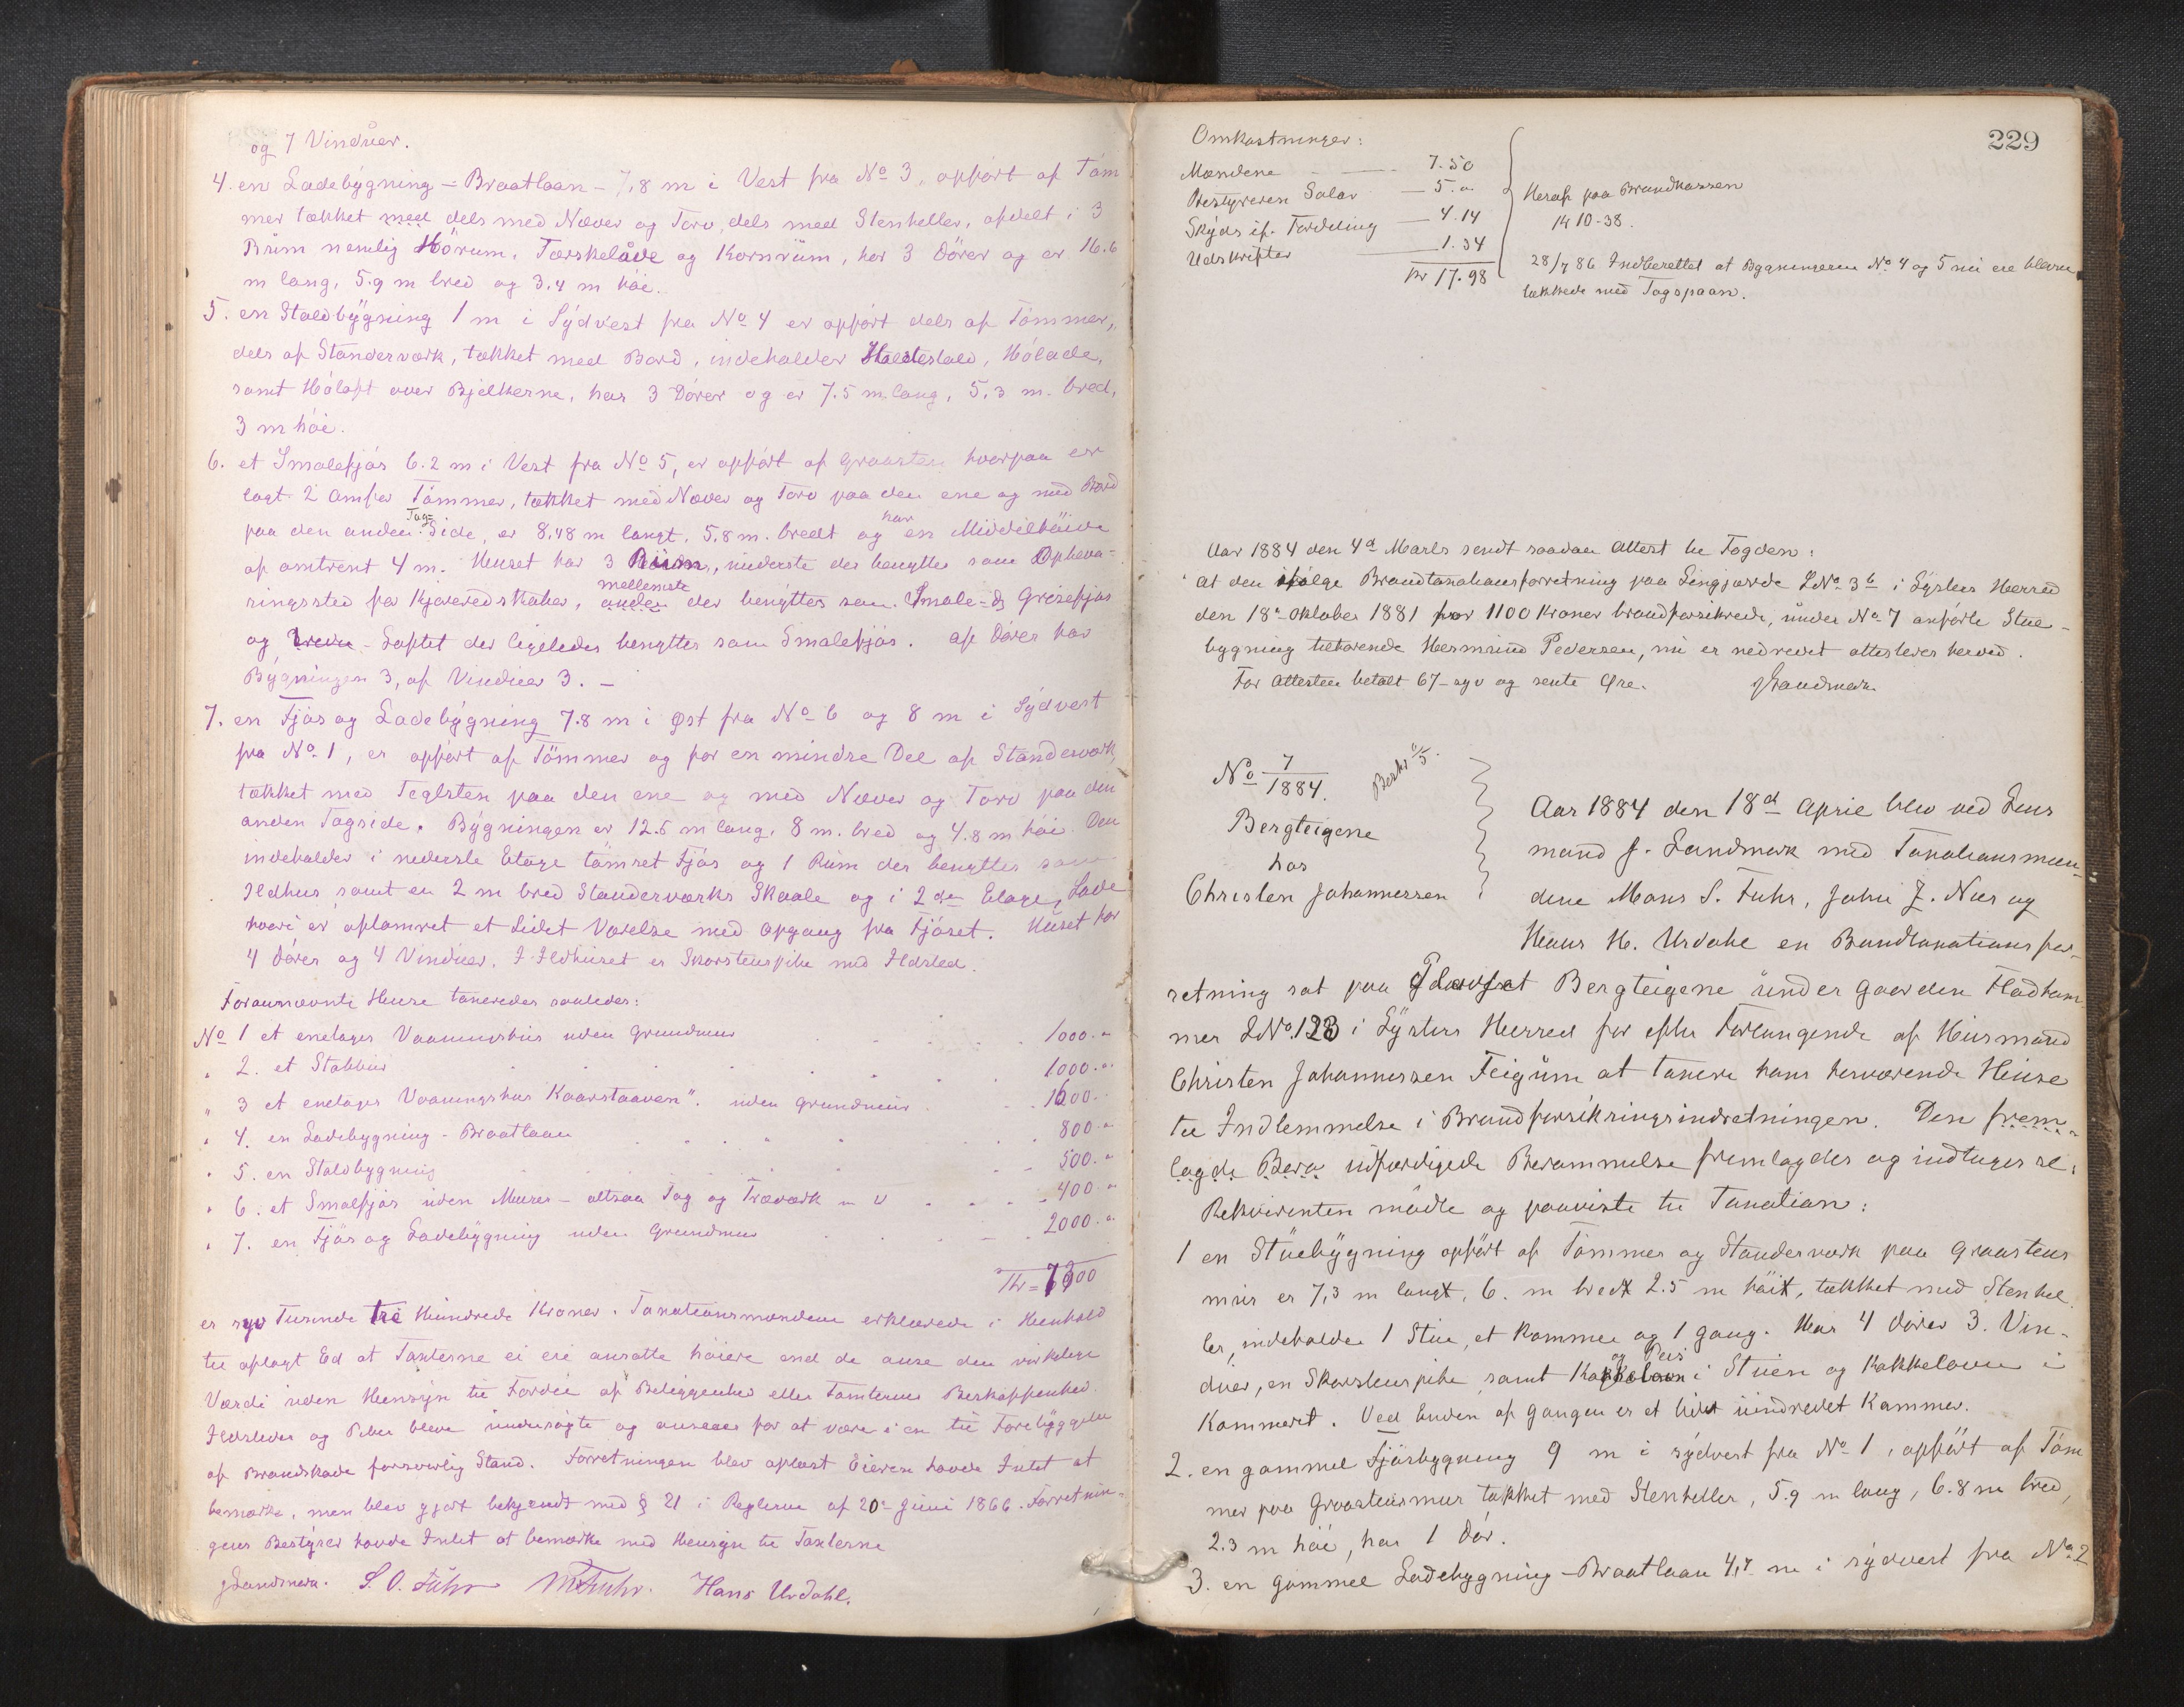 og 7 Vinduer.
4. en Ladebygning - Braatlaan - 7,8 m i Vest fra No 3, opført af Töm
mer tækket med dels med Næver og Torv, dels med Stenheller, afdelt i 3
Rüm nemlig Hörum, Tærskelåve og Kornrüm, har 3 Dörer og er 16.6
m lang, 5.9 m bred og 3.4 m höi.
5. en Staldbygning 1 m i Sydvest fra No 4 er opført dels af Tömmer,
dels af Standerværk, tækket med Bord, indeholder Hestestald, Hölade,
samt Höloft over Bjelkerne, har 3 Dörer og er 7.5 m lang, 5.3 m. bred,
3 m höi.
6. et Smalefjös 6.2 m i Vest fra No 5, er opført af Graasten hvorpaa er
lagt 2 Omfar Tömmer, tækket med Næver og Torv paa den ene og med Bord
paa den anden Tag= Side, er 8,48 m langt, 5.8 m. bredt og har en Middelhöide
af omtrent 4 m. Huset har 3 Rüm, nederste der benyttes som Opbeva=
ringssted for Kjøreredskaber, mellemste der benyttes som Smale- og Grisefjös
og Loftet der ligeledes benyttes som Smalefjös. af Dörer har
Bygningen 3, af Vinduer 3. -
7. en Fjös og Ladebygning 7.8 m i Øst fra No 6 og 8 m i Sydvest
fra No 1, er opført af Tömmer og for en mindre Del af Standerværk,
tækket med Teglsten paa den ene og med Næver og Torv paa den
anden Tagside. Bygningen er 12.5 m lang, 8 m. bred og 4.8 m höi. Den
indeholder i nederste Etage tömret Fjös og 1 Rüm der benyttes som
Ildhus samt en 2 m bred Standerværks Skaale og i 2den Etage, Lade
hvori er optömret et Lidet Værelse med Opgang fra Fjöset. Huset har
4 Dörer og 4 Vinduer. I Ildhuset er Skorstenspibe med Ildsted.
Forannævnte Huse taxeredes saaledes:
No 1 et enetages Vaaningshus uden Grundmur 1000.
" 2. et Stabbur 1000.
" 3 et enetages Vaaningshus Kaarstaaven". uden Grundmur 1600.
" 4. en Ladebygning - Braatlaan 800.
" 5. en Staldbygning 500.
" 6. et Smalfjös uden Murer - altsaa Tag og Træværk 400
" 7. en Fjös og Ladebygning uden Grundmur 2000.
Kr = 7300
er syv Tusinde tre Hundrede Kroner. Taxationsmændene erklærede i Henhold
til aflagt Ed at Taxterne ei ere ansatte höiere end de anse den virkelige
Værdi uden Hensyn til Fordele af Beliggenhed eller Tomternes Beskaffenhed.
Ildsteder og Piber bleve undersögte og ansaaes for at være i en til Forebyggelse
af Brandskade forsvarlig Stand. Forretningen blev oplæst Eieren havde Intet at
bemærke, men blev gjort bekjendt med § 21 i Reglerne af 20de Juni 1866. Forretnin-
gens Bestyrer havde Intet at bemærke med Hensyn til Taxterne
J Landmark. S. O. Fuhr M S Fuhr. Hans Urdahl.
229
Omkostninger:
Mændene 7.50
Bestyreren Salær 5.
Skyds if. Fordeling 4.14
Udskrifter 1.34
Kr 17.98
Heraf paa Brandkassen
Kr 10-38.
28/7 86 Indberettet at Bygningerne No 4 og 5 nu ere blevne
tækkede med Tagspaan.
Aar 1884 den 4de Marts sendt saadan Attest til Fogden:
at den ifølge Brandtaxationsforretning paa Lingjærde LNo 3b i Lysters Herred
den 18de Oktober 1881 for 1100 Kroner brandforsikrede, under No 7 anførte Stue-
bygning tilhørende Hermund Pedersen, nu er nedrevet attesteres herved.
For Attesten betalt 67 - syv og sexti Øre. J Landmark
No 7/1884.
Bergteigene
hos
Christen Johannessen
Aar 1884 den 18de April blev ved Lens
mand J. Landmark med Taxationsmæn-
dene Mons S. Fuhr, John J. Næs og
Hans H. Urdahl en Brandtaxationsfor-
retning sat paa Pladset Bergteigene under Gaarden Fladham
mer LNo. 123 i Lysters Herred for efter Forlangende af Husmand
Christen Johannessen Feigum at taxere hans herværende Huse
til Indlemmelse i Brandforsikringsindretningen. Den frem-
lagde Bera udfærdigede Berammelse fremlagdes og indtages sl.
Rekvirenten mödte og paaviste til Taxation:
1 en Stuebygning opfört af Tömmer og Standerværk paa Graastens
mur er 7,3 m langt, 6. m bredt 2.5 m höit, tækket med Stenhel
ler, indeholder 1 Stue, et Kammer og 1 Gang. Har 4 Dörer 3. Vin-
duer, en Skorstenspibe samt Kakkelovn og Peis i Stuen og Kakkelovn i
Kammeret. Ved Enden af Gangen er et lidet uindredet Kammer.
2. en gammel Fjösbygning 9 m i sydvest fra No 1, opfört af Töm
mer paa Graastensmur tækket med Stenheller, 5.9 m lang, 6.8 m bred,
2.3 m höi, har 1 Dör.
3. en gammel Ladebygning - Braatlaan 4,7 m i sydvest fra No 2